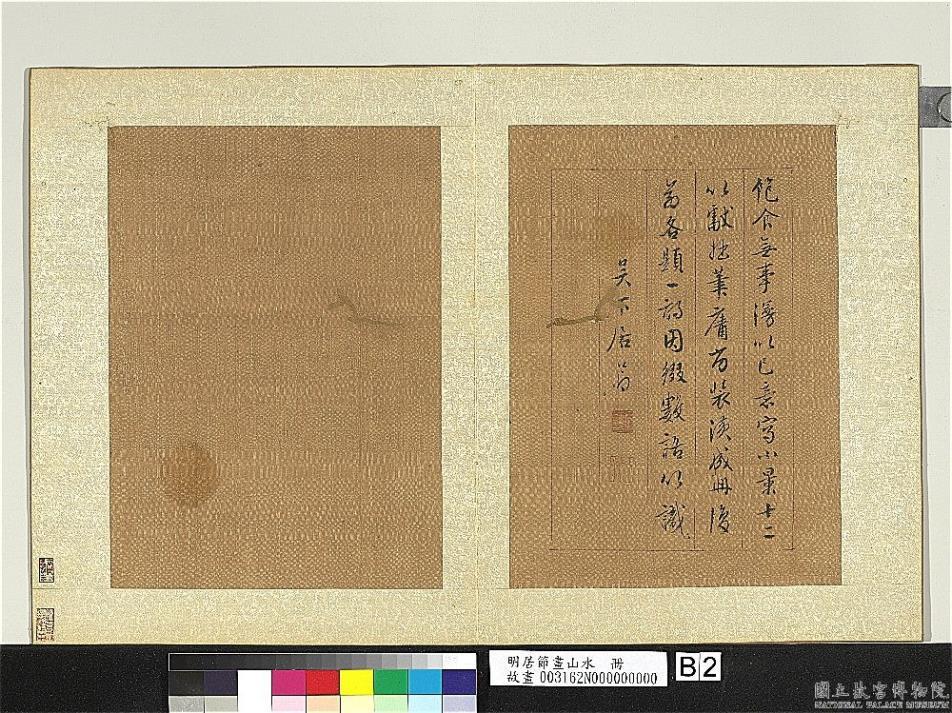 飽食無事漫以己意寫小景十二
以獻拙業庸高裝潢成冊復
為各題一詩因綴數語以識
吳下居節
明居節畫山水 冊
故畫003162N000000000
B2
國立故宮博物院
NATIONAL PALACE MUSEUM